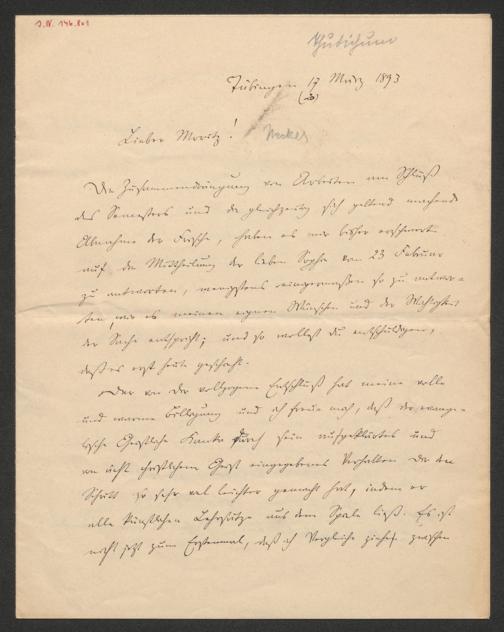 J.N. 146.801
Thudichum
Tübingen 17 März 1893
Lieber Moritz!
Necker
Die Zusammendrängung von Arbeiten am Schluß
des Semesters und die gleichzeitig sich geltend machende
Abnahme der Frische, haben es mir bisher erschwert
auf die Mittheilung der lieben Sophie vom 23 Februar
zu antworten, wenigstens einigermaßen so zu antwor-
ten, wie es meinen eignen Wünschen und der Wichtigkeit
der Sache entspricht; und so wollest du entschuldigen,
daß es erst heute geschieht.
Der von dir vollzogene Entschluß hat meine volle
und warme Billigung und ich freue mich, daß der evange-
lische Geistliche durch sein aufgeklärtes und
von ächt christlichem Geist eingegebenes Verhalten Dir den
Schritt so sehr viel leichter gemacht hat, indem er
alle künstlichen Lehrsätze aus dem Spiele ließ. Es ist
nicht jetzt zum Erstenmal, daß ich Vergleiche ziehe zwischen